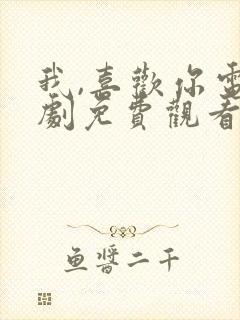 我,喜歡你電
劇免費觀看
鱼醬二千